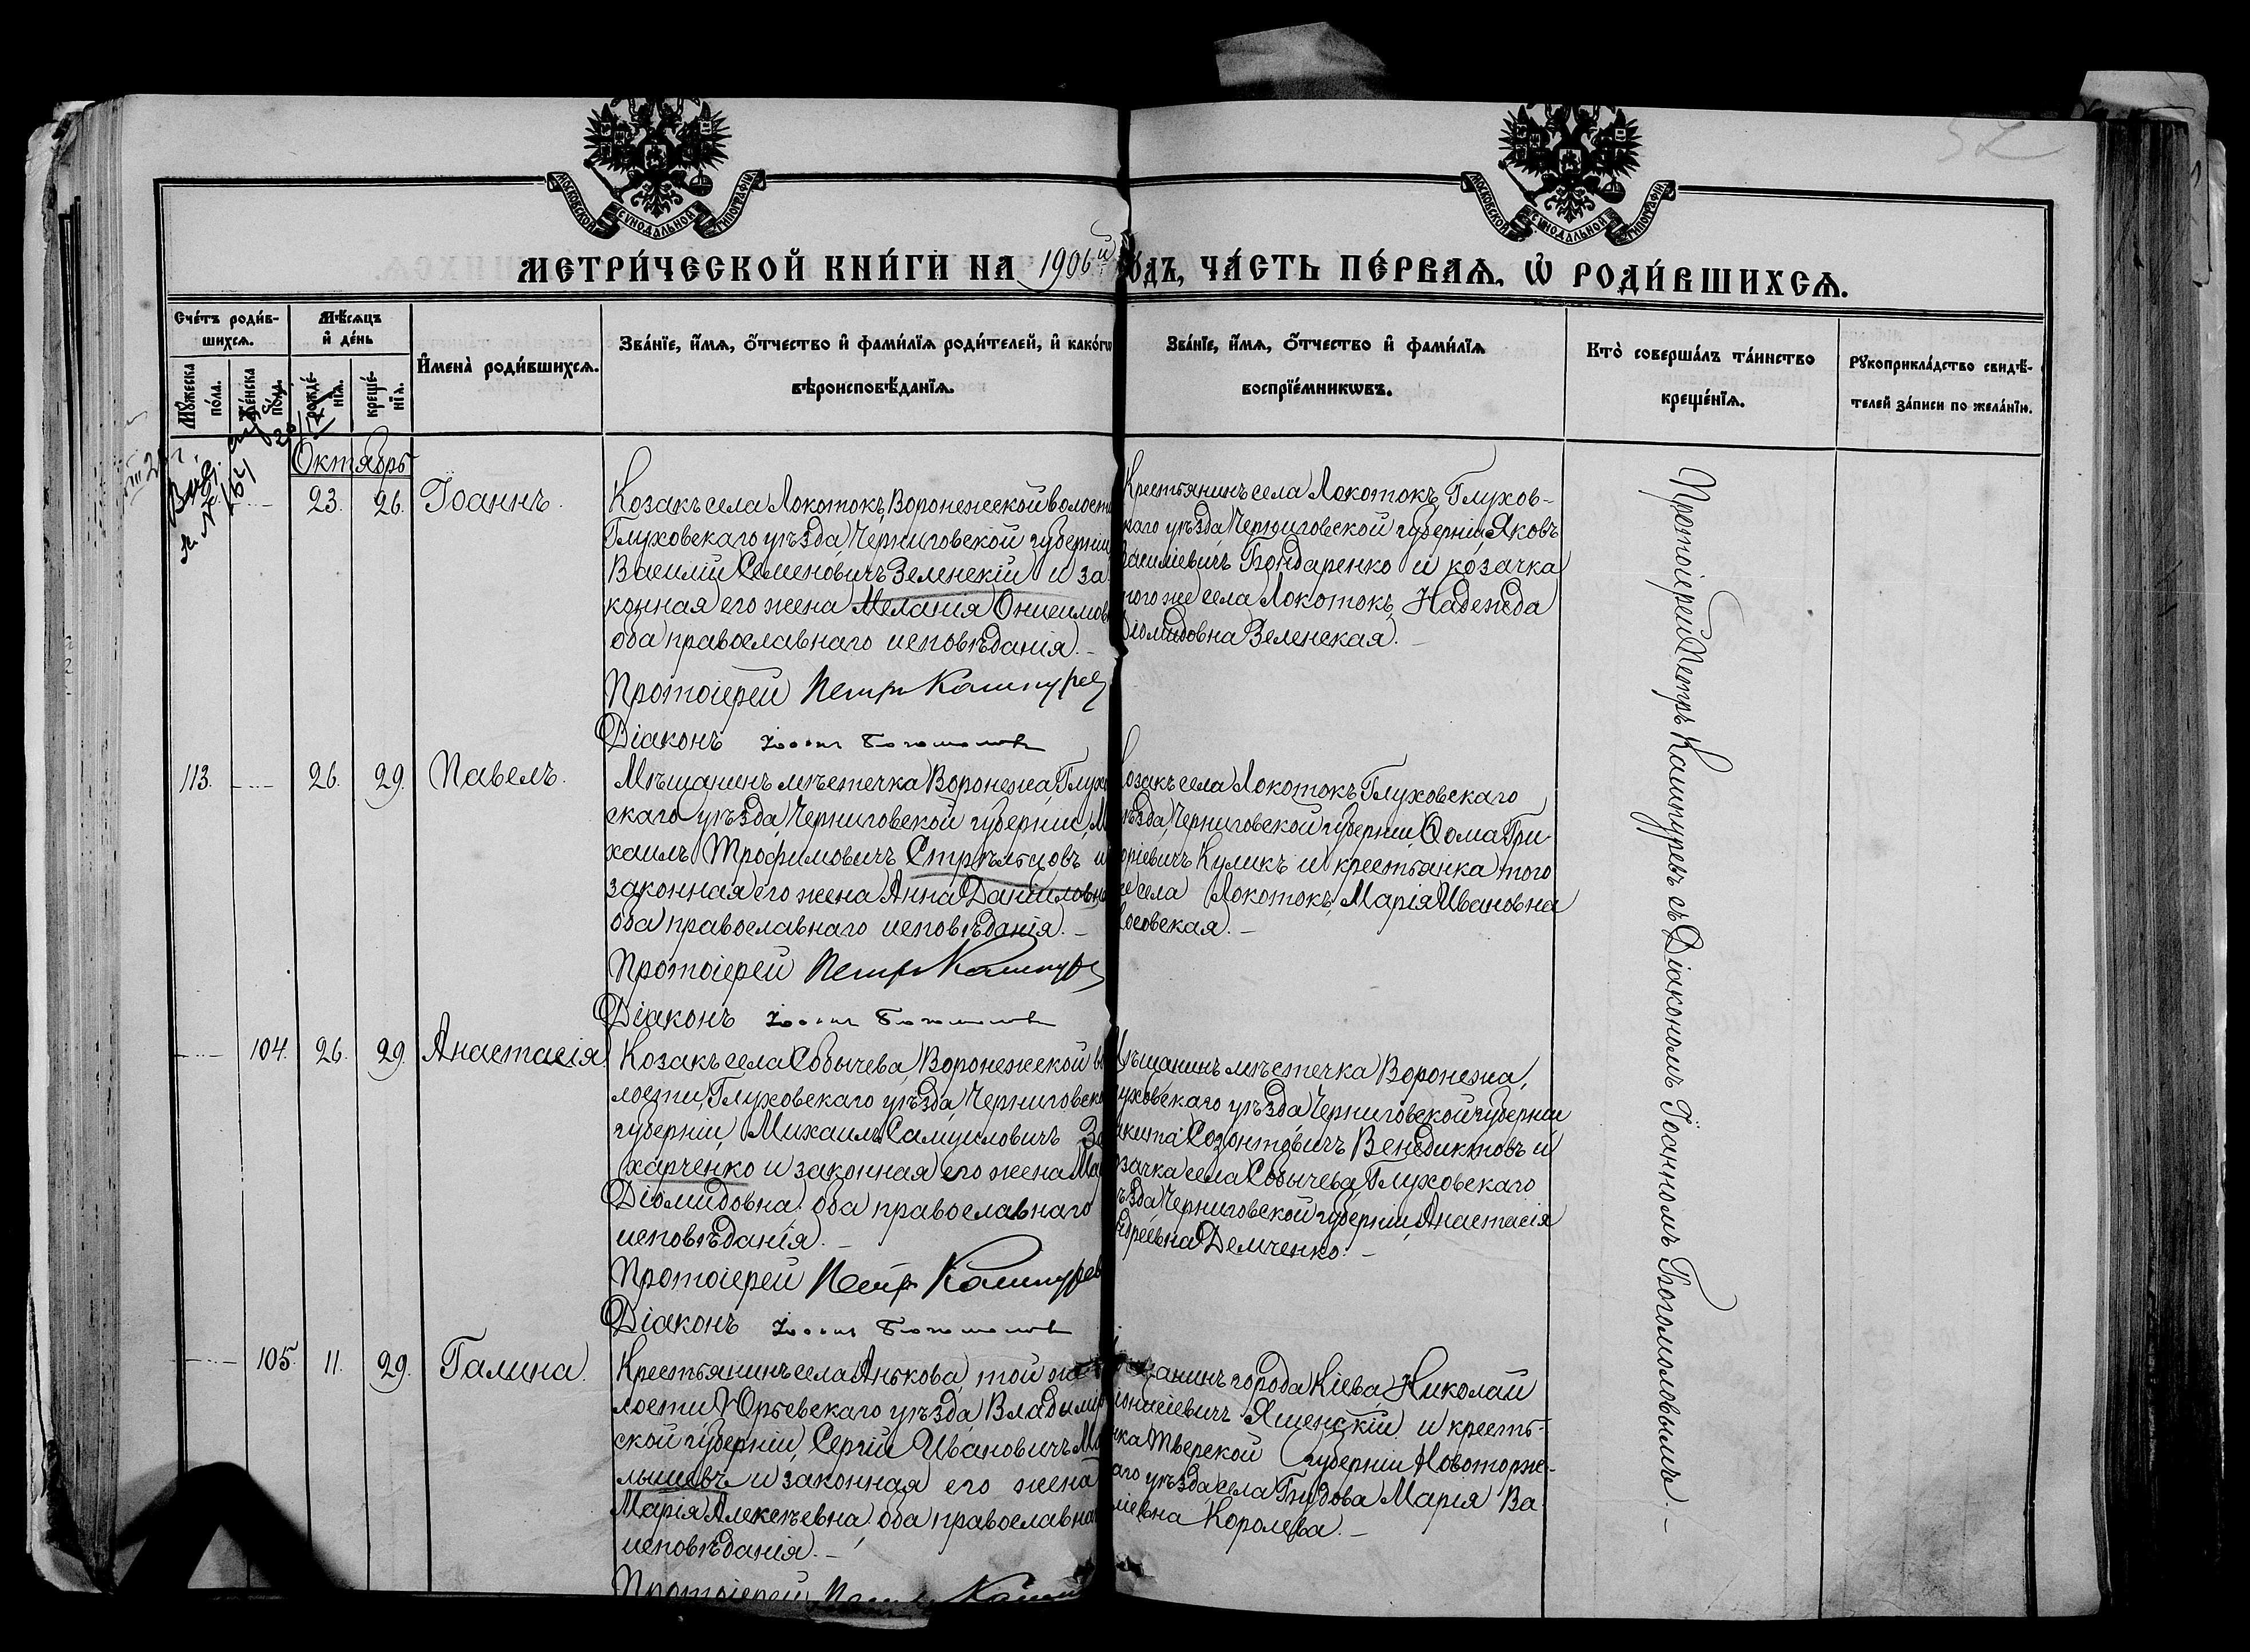 МОСКОВСКОЙ СѴНОДАЛЬНОЙ ТИПОГРАФІИ
МОСКОВСКОЙ СѴНОДАЛЬНОЙ ТИПОГРАФІИ
МЕТРИ́ЧЕСКОЙ КНИ́ГИ НА 1906й го́дъ, ЧА́СТЬ ПЕ́РВАѦ, Ѡ҆ РОДИ́ВШИХСѦ.
Счéтъ роди́в-
шихсѧ.
Мꙋ́жеска по́ла.
Же́нска по́ла.
Мѣ́сѧцъ
и҆ де́нь
рожде́-
нїѧ.
креще́-
нїѧ.
И҆мена̀ роди́вшихсѧ.
Зва́нїе, и҆́мѧ, ѻ҆́тчество и҆ фами́лїѧ роди́телей, и҆ како́гѡ
вѣроисповѣ́данїѧ.
Зва́нїе, и҆́мѧ, ѻ҆́тчество и҆ фами́лїѧ
воспрїе́мникѡвъ.
Кто̀ соверша́лъ та́инство
креще́нїѧ.
Рꙋкоприкла́дство свидѣ́-
телей за́писи по жела́нїю.
Октябрь
23. 26. Іоаннъ.
Козакъ села Локотокъ, Воронежской волости
Глуховскаго уѣзда Черниговской губерніи
Василій Семеновичъ Зеленскій и за
конная его жена Меланія Онисимов
оба православнаго исповѣданія. –
Протоіерей Петръ Кашпурев
Діаконъ Іоаннъ Богомолов
Крестьянинъ села Локотокъ, Глухов-
скаго уѣзда Черниговской губерніи, Яковъ
Василіевичъ Бондаренко и козачка
того же села Локотокъ, Надежда
Діомидовна Зеленская. –
113. 26. 29. Павелъ.
Мѣщанинъ мѣстечка Воронежа, Глухо
скаго уѣзда, Черниговской губерніи, Ми
хаилъ Трофимовичъ Стрѣльцовъ и
законная его жена Анна Даниловна
оба православнаго исповѣданія. –
Протоіерей Петръ Кашпур
Діаконъ Іоаннъ Богомолов
Козакъ села Локотокъ Глуховскаго
уѣзда, Черниговской губерніи, Ѳома Гри-
горіевичъ Куликъ и крестьянка того
же села Локотокъ, Марія Ивановна
104. 26. 29. Анастасія.
Козакъ села Собычева, Воронежской во
лости, Глуховскаго уѣзда, Черниговско
губерніи, Михаилъ Самуиловичъ За
харченко и законная его жена Ма
Діомидовна. оба православнаго
исповѣданія. –
Протоіерей Петръ Кашпурев
Діаконъ Іоаннъ Богомолов
Мѣщанинъ мѣстечка Воронежа,
Глуховскаго уѣзда Черниговской губерніи
Никита Созонтовичъ Венедиктовъ и
козачка села Собычева, Глуховскаго
уѣзда Черниговской губерніи, Анастасія
Демченко. –
105. 11. 29. Галина.
Крестьянинъ села Анькова, той же
лости Юрьевскаго уѣзда Владимір
ской губерніи, Сергій Ивановичъ Ма
лышевъ и законная его жена
Марія Алексѣевна. оба православна
исповѣданія. –
Протоіерей Петръ Кашп
Мѣщанинъ города Кіева, Николай
Діонисіевичъ Яшенскій, и кресть-
янка Тверской губерніи Новоторж-
скаго уѣзда села Марія Ва-
силіевна Королева. –
Протоіерей Петръ Кашпуревъ съ Діакономъ Іоанномъ Богомоловымъ. –